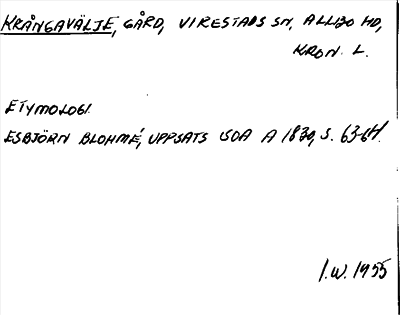 KRÅNGAVÄLJE, GÅRD, VIRESTADS SN, ALLBO HD,
KRON. L.
ETYMOLOGI.
ESBJÖRN BLOHMÉ, UPPSATS ISOA A 1830, S. 63-64.
I.W. 1955